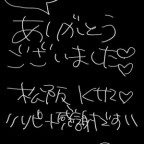 ありがとう
ございました♡♡
松阪 K112♡
\\リピート感謝です\\